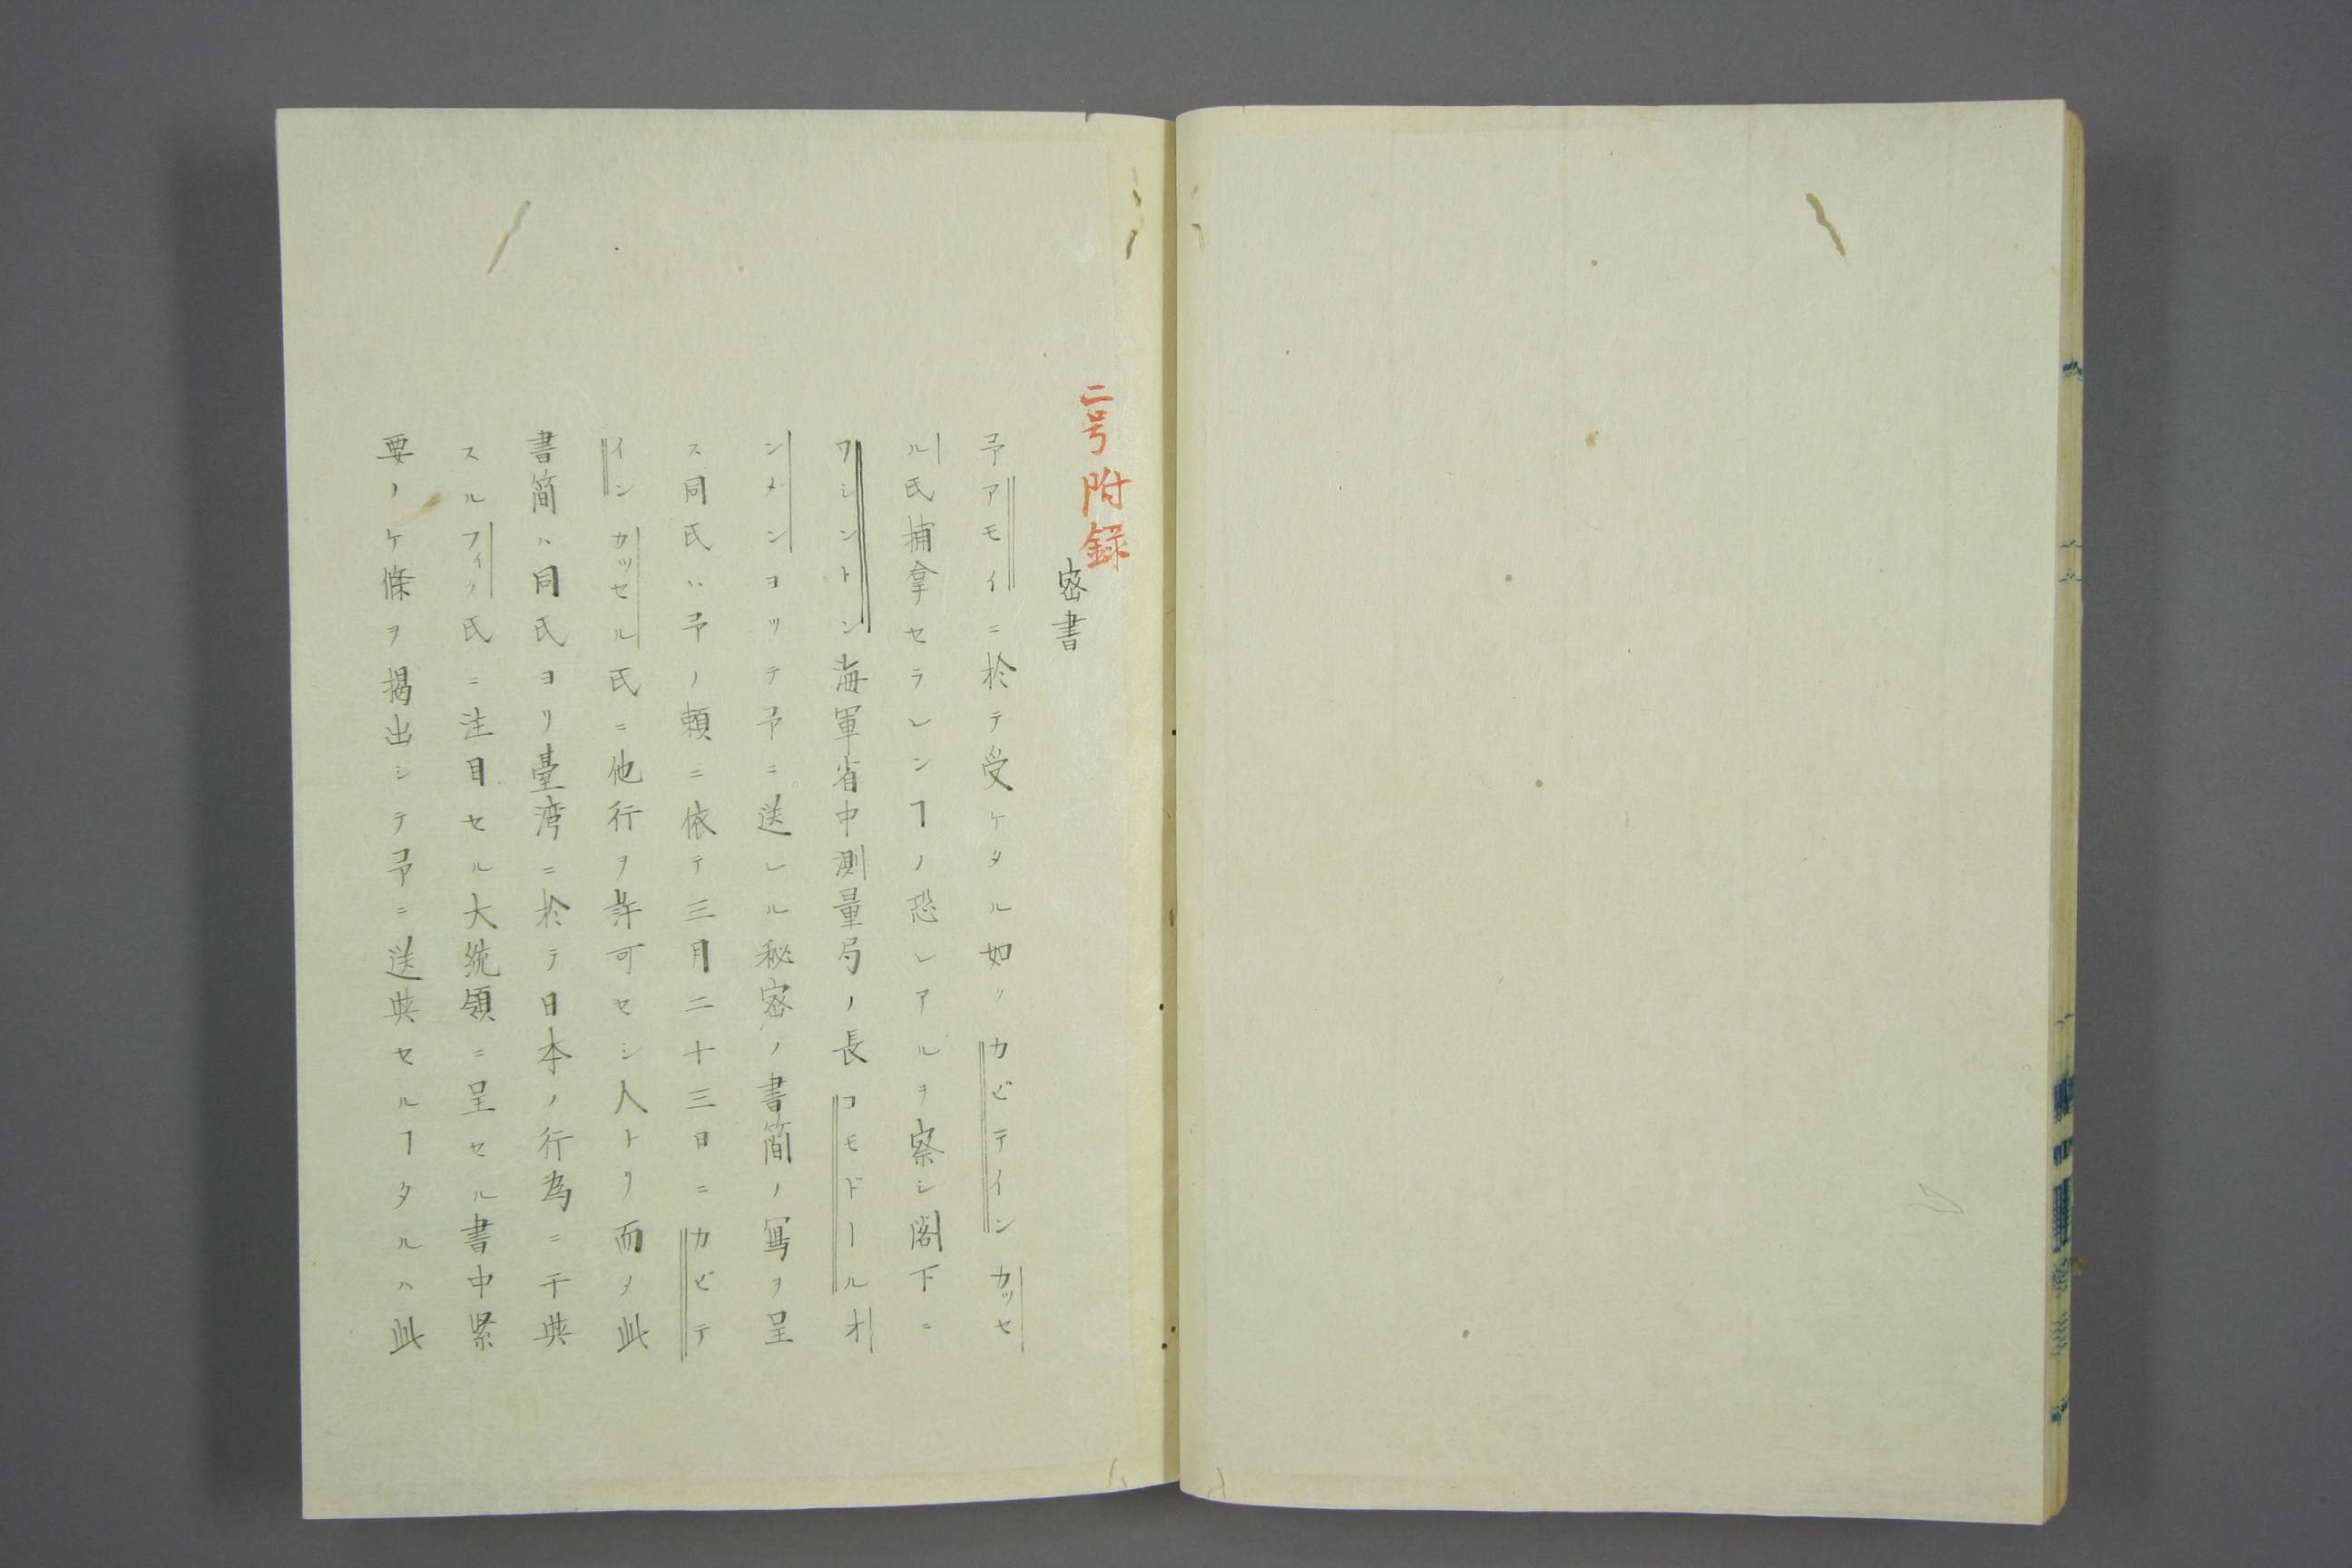 二号附録
密書
予アモイニ於テ受ケタル如クカピテインカッセ
ル氏捕拿セラレンヿノ恐レアルヲ察シ閣下ニ
ワシントン海軍省中測量局ノ長コモドールオ
ンメンヨリテ予ニ送レル秘密ノ書簡ノ写ヲ呈
ス同氏ハ予ノ頼ニ依テ三月二十三日ニカピテ
インカッセル氏ニ他行ヲ許可セシ人トリ而メ此
書簡ハ同氏ヨリ臺湾ニ於テ日本ノ行為ニ干典
スルフィノ氏ニ注目セル大統領ニ呈セル書中緊
要ノケ條ヲ掲出シテ予ニ送典セルヿタルハ此